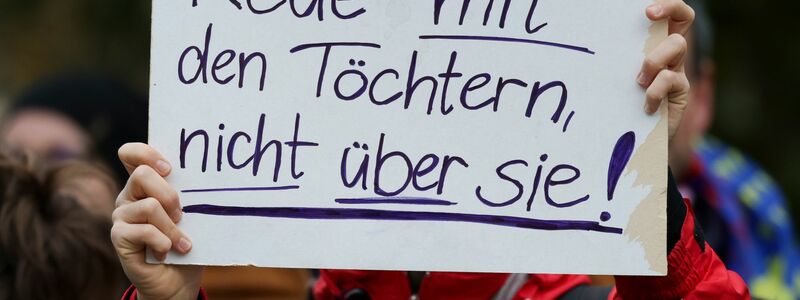 Rede mit
den Töchtern,
nicht über sie!